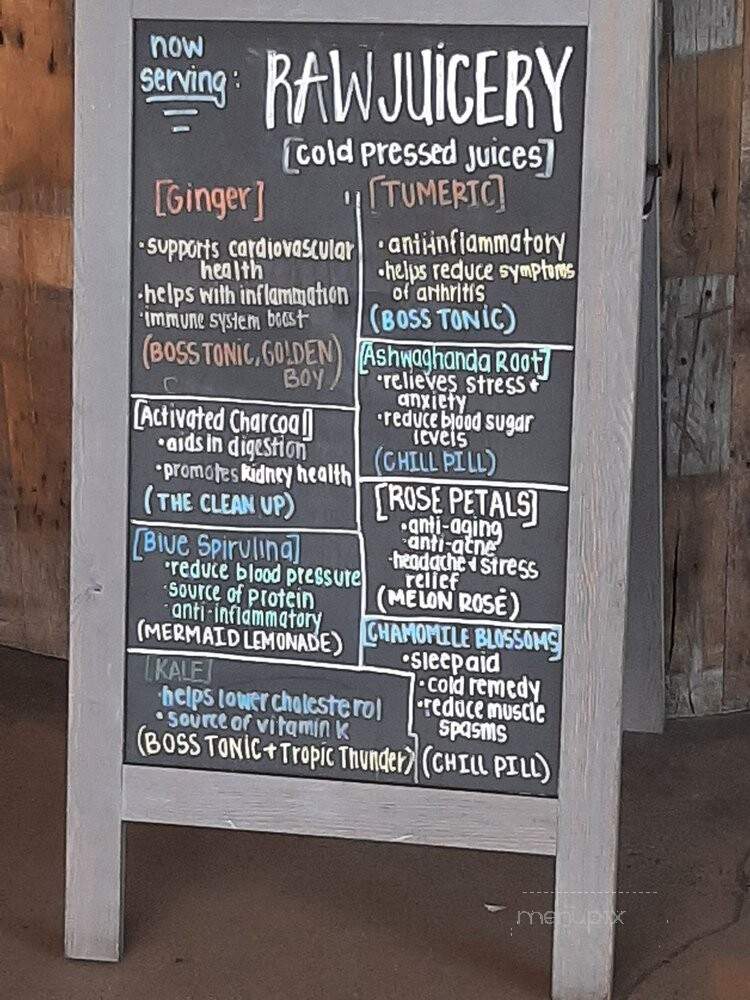 now
serving:
RAW JUICERY
[cold pressed juices]
[Ginger]
• supports cardiovascular
health
• helps with inflammation
• immune system boost
(BOSS TONIC, GOLDEN
BOY)
[Activated Charcoal]
• aids in digestion
• promotes kidney health
(THE CLEAN UP)
[Blue Spirulina]
• reduce blood pressure
• source of protein
• anti-inflammatory
(MERMAID LEMONADE)
[KALE]
• helps lower cholesterol
• source of vitamin K
(BOSS TONIC + Tropic Thunder)
[TUMERIC]
• anti-inflammatory
• helps reduce symptoms
of arthritis
(BOSS TONIC)
[Ashwaghanda Root]
• relieves stress +
anxiety
• reduce blood sugar
levels
(CHILL PILL)
[ROSE PETALS]
• anti-aging
• anti-acne
• headache + stress
relief
(MELON ROSÉ)
[CHAMOMILE BLOSSOMS]
• sleep aid
• cold remedy
• reduce muscle
spasms
(CHILL PILL)
menupix